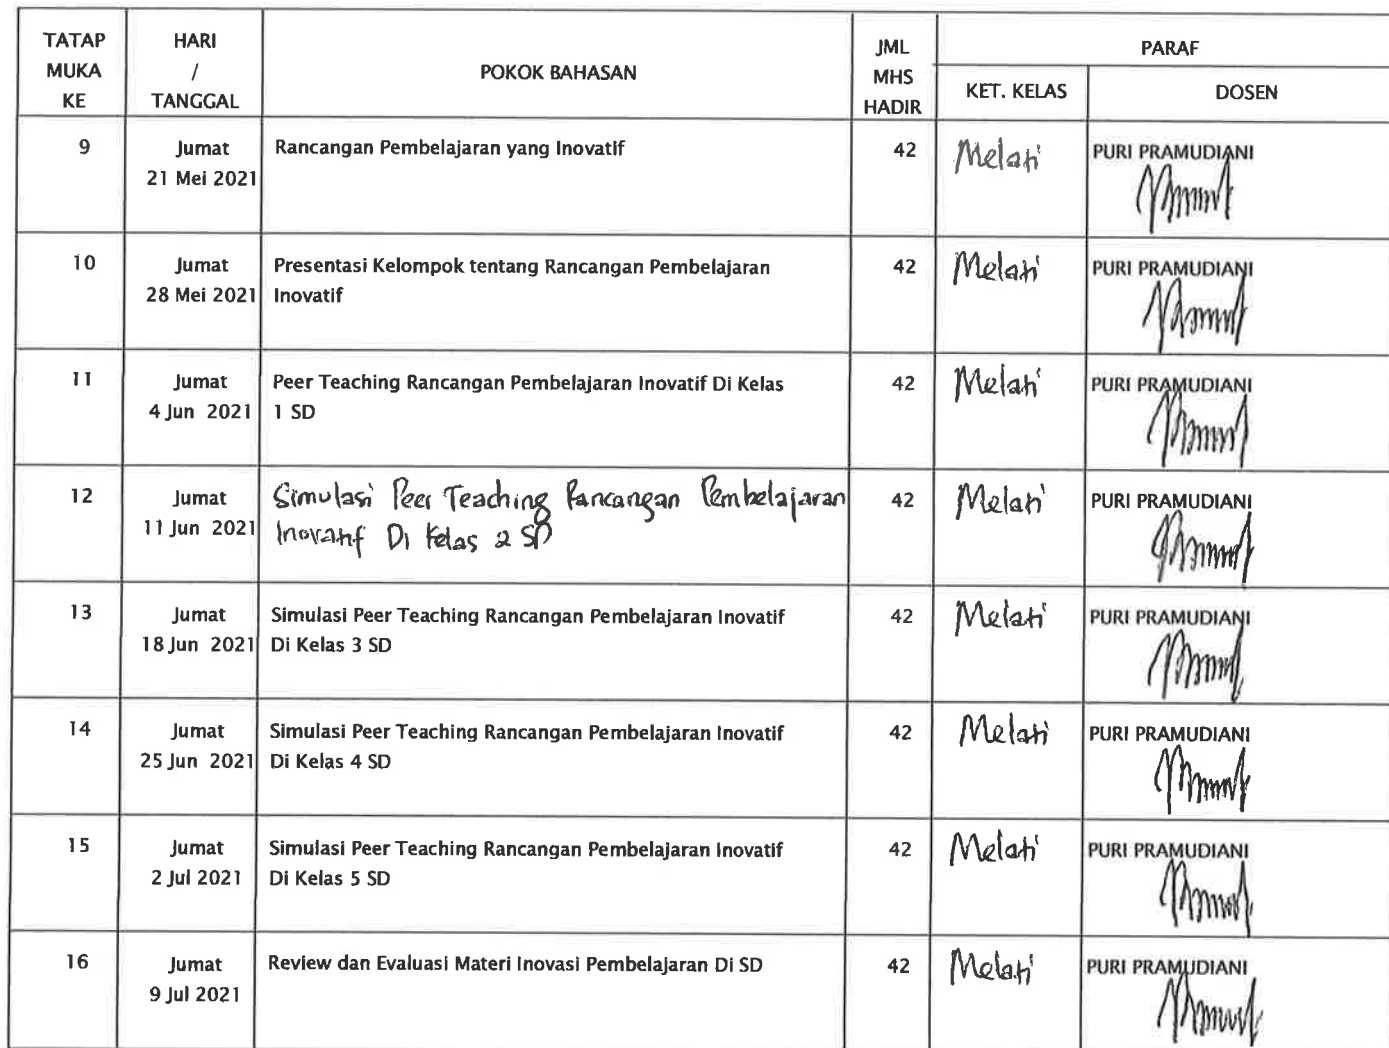 TATAP MUKA KE
HARI / TANGGAL
POKOK BAHASAN
JML MHS HADIR
PARAF
KET. KELAS
DOSEN
9
Jumat
21 Mei 2021
Rancangan Pembelajaran yang Inovatif
42
Melati
PURI PRAMUDIANI
10
Jumat
28 Mei 2021
Presentasi Kelompok tentang Rancangan Pembelajaran
Inovatif
42
Melati
PURI PRAMUDIANI
11
Jumat
4 Jun 2021
Peer Teaching Rancangan Pembelajaran Inovatif Di Kelas
1 SD
42
Melati
PURI PRAMUDIANI
12
Jumat
11 Jun 2021
Simulasi Peer Teaching Rancangan Pembelajaran
Inovatif Di Kelas 2 SD
42
Melati
PURI PRAMUDIANI
13
Jumat
18 Jun 2021
Simulasi Peer Teaching Rancangan Pembelajaran Inovatif
Di Kelas 3 SD
42
Melati
PURI PRAMUDIANI
14
Jumat
25 Jun 2021
Simulasi Peer Teaching Rancangan Pembelajaran Inovatif
Di Kelas 4 SD
42
Melati
PURI PRAMUDIANI
15
Jumat
2 Jul 2021
Simulasi Peer Teaching Rancangan Pembelajaran Inovatif
Di Kelas 5 SD
42
Melati
PURI PRAMUDIANI
16
Jumat
9 Jul 2021
Review dan Evaluasi Materi Inovasi Pembelajaran Di SD
42
Melati
PURI PRAMUDIANI